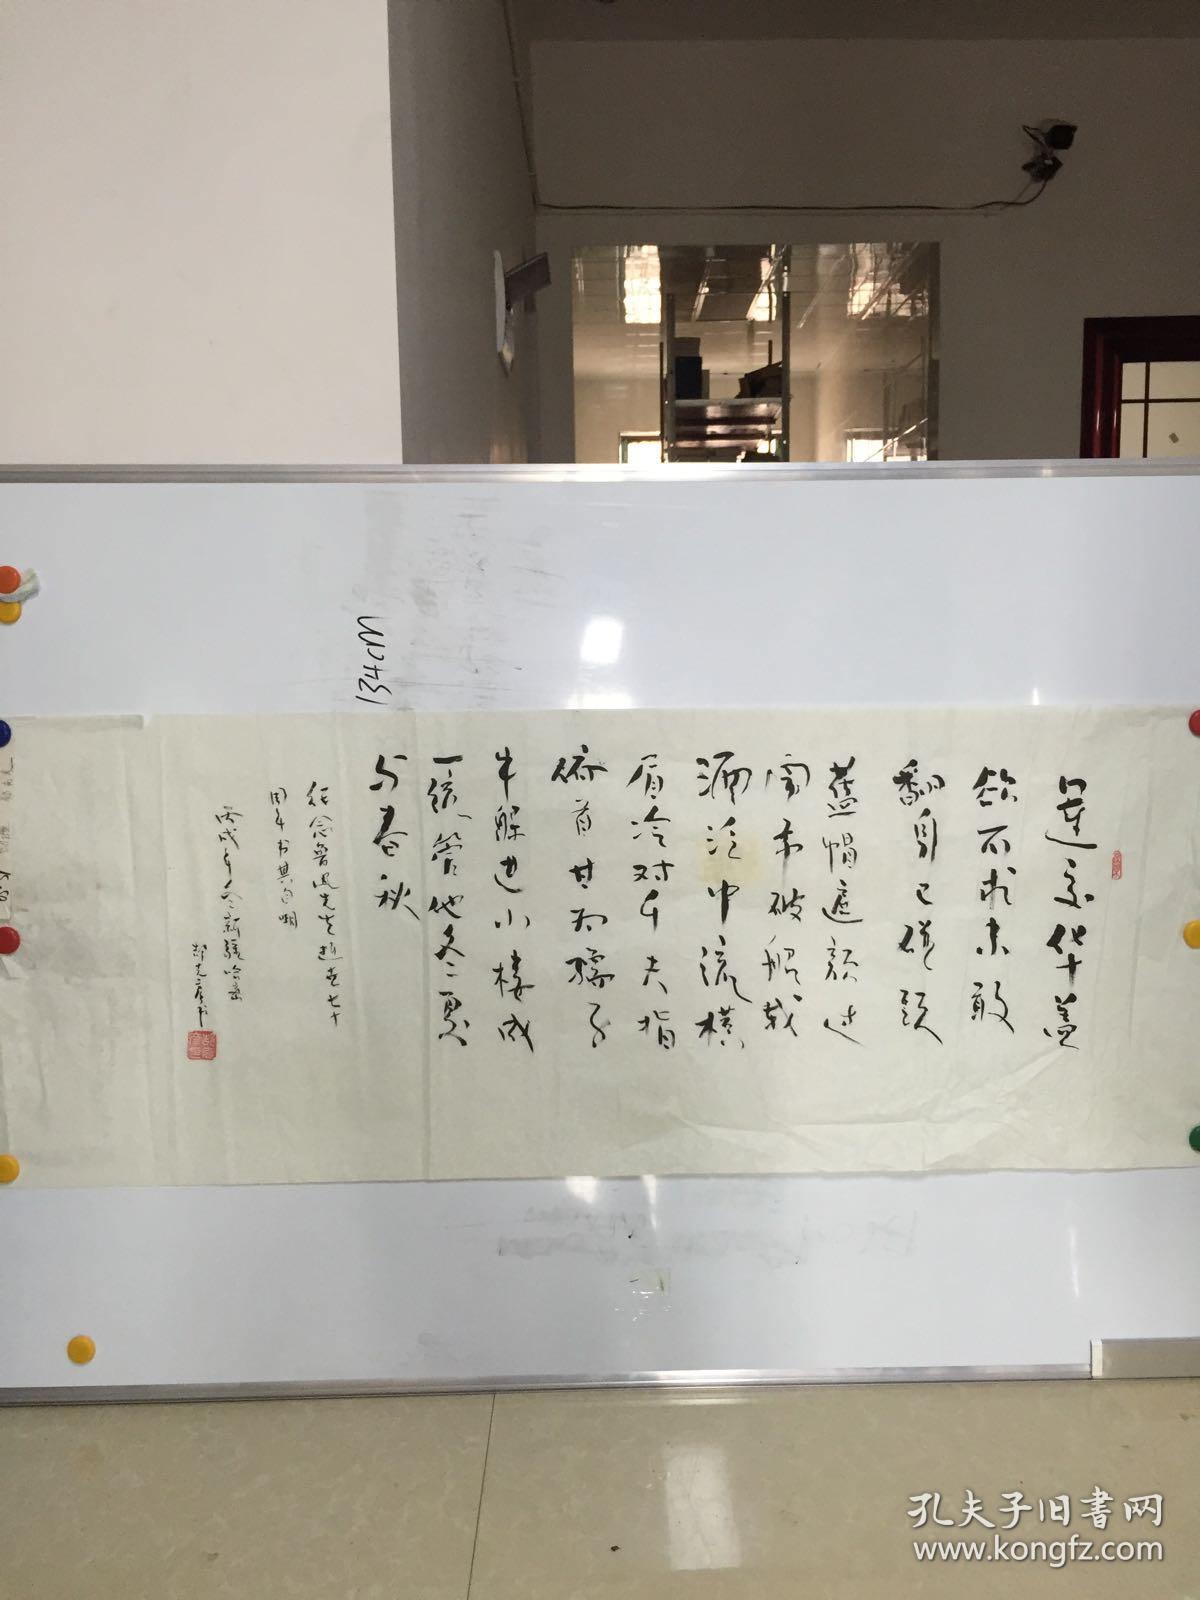 134cm
運交华盖
欲何求未敢
翻身已碰頭
蓝帽遮颜过
闹市破船载
酒泛中流横
眉冷对千夫指
俯首甘为孺子
牛躲进小楼成
一统管他冬夏
与春秋
纪念鲁迅先生逝世七十
周年书其自嘲
丙戌年冬新疆哈密
孔夫子旧书网
www.kongfz.com